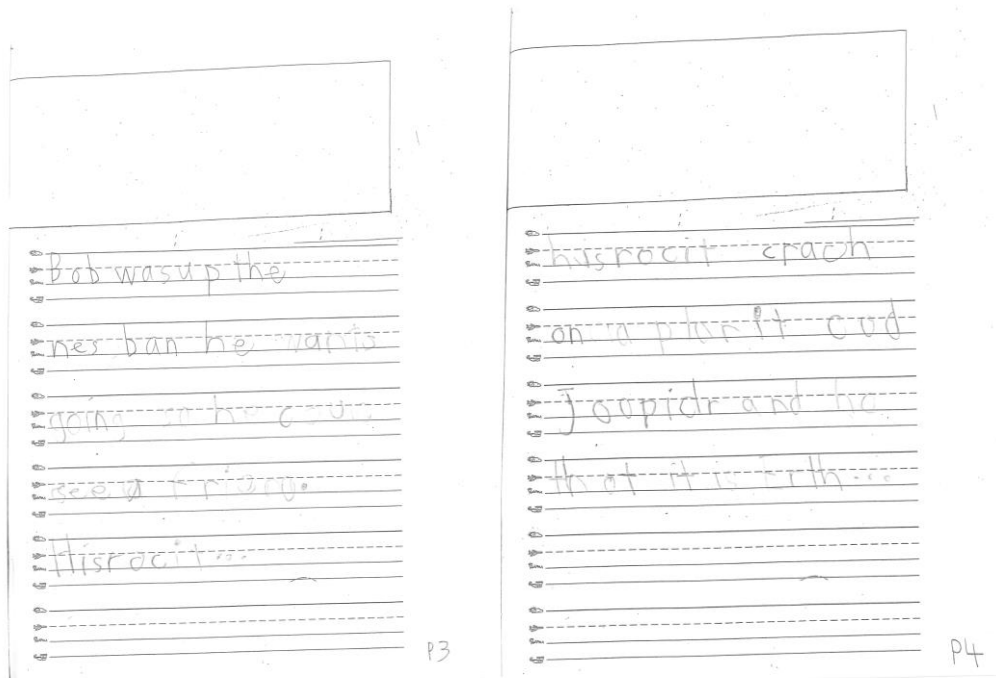 Bob was up the
nes ban he wants
going so he
see a
His rocit...
P3
his rocit crach
on a plan it cod
Joopidr and he
that it is Erth...
P4